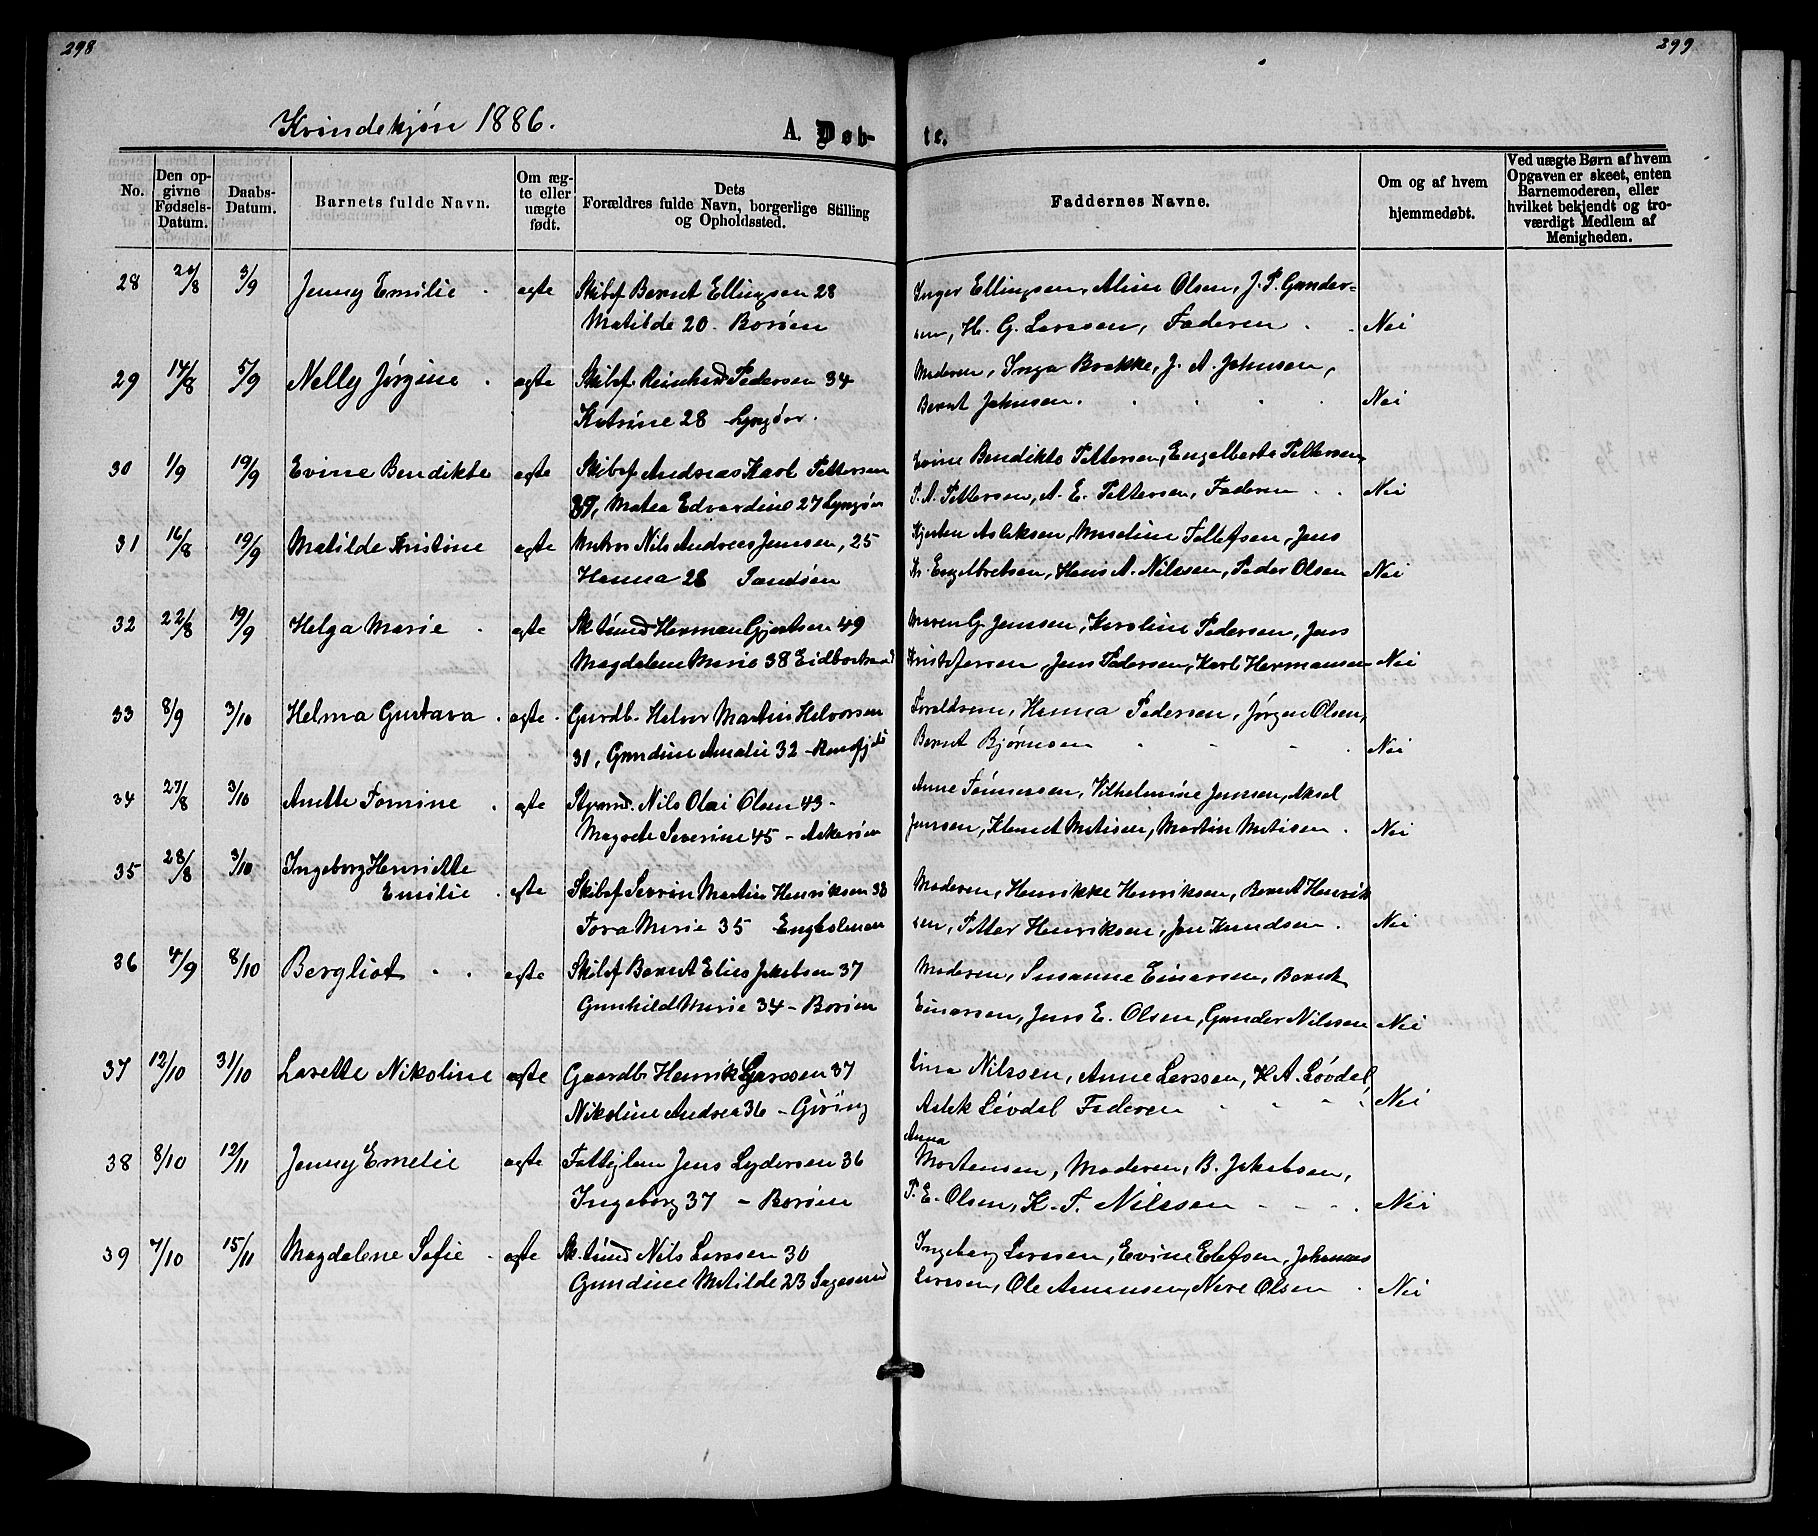 298
299
Kvindekjøn 1886.
A. Døb-
te.
No.
Den op-
givne
Fødsels-
Datum.
Daabs-
Datum.
Barnets fulde Navn.
Om æg-
te eller
uægte
født.
Dets
Forældres fulde Navn, borgerlige Stilling
og Opholdssted.
Faddernes Navne.
Om og af hvem
hjemmedøbt.
Ved uægte Børn af hvem
Opgaven er skeet, enten
Barnemoderen, eller
hvilket bekjendt og tro-
værdigt Medlem af
Menigheden.
28 3/9 Jenny Emilie . ægte Skibsf Bernt Ellingsen 28 Inger Ellingsen, Aline Olsen, J. P. Gunder-
Matilde 20. Borøen sen, H. G. Larssen, Faderen . . Nei
29 14/8 5/9 Nelly Jørgine . ægte Skibsf. Reinhard Pedersen 34 Moderen, Inga Brekke, J. A. Johnsen,
Katrine 28 Lyngør. Bernt Johnsen. . . . . Nei
30 1/9 19/9 Evine Bendikte ægte Skibsf Andreas Karl Pettersen Evine Bendikte Pettersen, Engelberte Pettersen,
37, Matea Edvardine 27 Lyngør P. A. Pettersen, A. E. Pettersen, Faderen . . Nei
31 16/8 19/9 Matilde Kristine ægte Matros Nils Andreas Jensen, 25 Kjersten Aslaksen, Maseline Tellefsen, Jens
Hanna 28 Sandøen Kr. Engelbretsen, Hans A. Nilssen, Peder Olsen Nei
32 22/8 19/9 Helga Marie . ægte Sk.tømd Herman Gjertsen 49 Maren G. Jenssen, Karoline Pedersen, Jens
Magdalene Marie 38 Eidbostrand Kristofersen, Jens Pedersen, Karl Hermansen Nei
33 8/9 3/10 Helma Gustava . ægte . Gaardb. Halvor Martin Halvorsen Forældrene, Hanna Pedersen, Jørgen Olsen,
31, Gundine Amalie 32 - Bernt Bjørnsen . . . . Nei
34 27/8 3/10 Anette Tomine . ægte Strand. Nils Olai Olsen 43 - Anne Tønnessen, Vilhelmine Jenssen, Aksel
Magrete Severine 45 - Askerøen Jenssen, Klemet Matisen, Martin Matisen . Nei
35 28/8 3/10 Ingeborg Henriette
Emilie . ægte Skibsf Severin Martin Henriksen 33 Moderen, Henrikke Henriksen, Bernt Henrik
Tora Marie 35 Engholmen sen, Petter Henriksen, Jon Knudsen . Nei
36 4/9 8/10 Bergliot . . ægte Skibsf Bernt Elias Jakobsen 37 Moderen, Susanne Einarsen, Bernt
Gunhild Marie 34 - Borøen Einarsen, Jens E. Olsen, Gunder Nilssen Nei
37 12/10 31/10 Lovette Nikoline ægte Gaardb. Henrik Larssen 37 Lina Nilssen, Anne Larssen, K. A. Løvdal,
Nikoline Andrea 36 - Giving Aslak Løvdal Faderen . . . Nei
38 8/10 12/11 Jenny Emelie ægte Fattiglem Jens Lydersen 36 Anna Mortensen, Moderen, B. Jakobsen,
Ingeborg 37 - Borøen P. E. Olsen, K. T. Nilssen . . . Nei
39 7/10 15/11 Magdalene Sofie . ægte Sk.tømd Nils Larssen 30 Ingeborg Larssen, Evine Elefsen, Johannes
Gundine Matilde 23 Sagesund Larssen, Ole Amensen, Nere Olsen . Nei